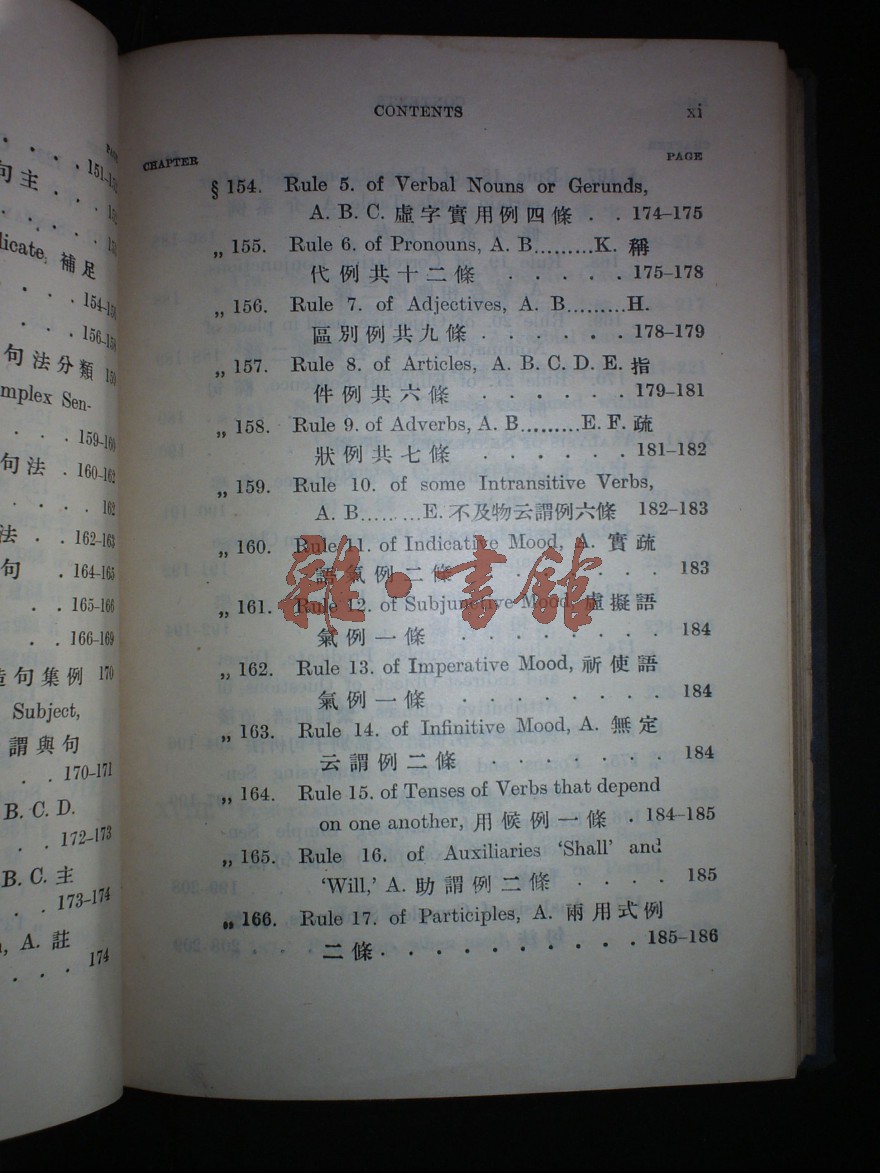 PAGE
151-152
句主 . . . 152
licate, 補足
154-156
156-158
句法分類 159
mplex Sen-
159-160
句法 . 160-162
162
法 . . 162-163
句 . 164-165
165-166
166-169
造句集例 170
Subject,
謂與句
170-171
B. C. D.
172-173
B. C. 主
173-174
A. 註
174
CONTENTS xi
CHAPTER PAGE
§ 154. Rule 5. of Verbal Nouns or Gerunds,
A. B. C. 虛字實用例四條 . . 174-175
„ 155. Rule 6. of Pronouns, A. B.........K. 稱
代例共十二條 . . . . . 175-178
„ 156. Rule 7. of Adjectives, A. B.........H.
區別例共九條 . . . . . . 178-179
„ 157. Rule 8. of Articles, A. B. C. D. E. 指
件例共六條 . . . . . . 179-181
„ 158. Rule 9. of Adverbs, A. B.........E. F. 疏
狀例共七條 . . . . . . 181-182
„ 159. Rule 10. of some Intransitive Verbs,
A. B.........E. 不及物云謂例六條 182-183
„ 160. Rule 11. of Indicative Mood, A. 實疏
語氣例二條 . . . . . . . 183
„ 161. Rule 12. of Subjunctive Mood, 虛擬語
氣例一條 . . . . . . . . 184
„ 162. Rule 13. of Imperative Mood, 祈使語
氣例一條 . . . . . . . . 184
„ 163. Rule 14. of Infinitive Mood, A. 無定
云謂例二條 . . . . . . . 184
„ 164. Rule 15. of Tenses of Verbs that depend
on one another, 用候例一條 . 184-185
„ 165. Rule 16. of Auxiliaries ‘Shall’ and
‘Will,’ A. 助謂例二條 . . . . 185
„ 166. Rule 17. of Participles, A. 兩用式例
二條 . . . . . . . . . . 185-186
雜·書館